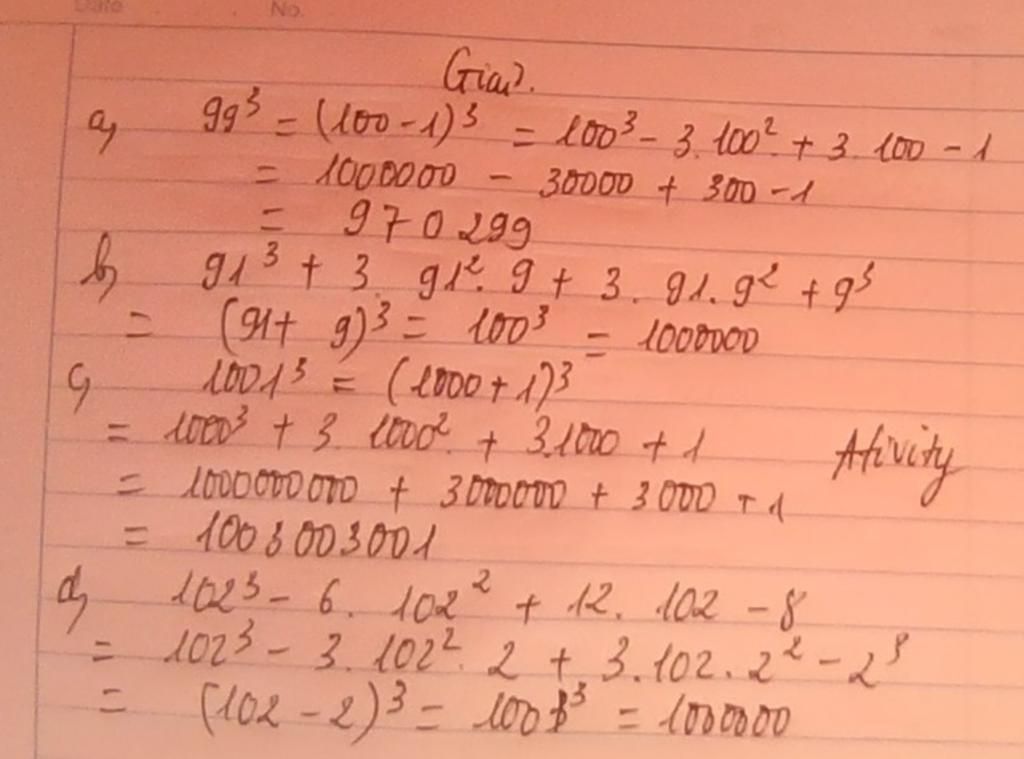 Date No.
Giải.
a, 99³ = (100 - 1)³ = 100³ - 3.100² + 3.100 - 1
= 1000000 - 30000 + 300 - 1
= 970299
b, 91³ + 3. 91². 9 + 3. 91. 9² + 9³
= (91 + 9)³ = 100³ = 1000000
c, 1001³ = (1000 + 1)³
= 1000³ + 3. 1000² + 3.1000 + 1
Afivity
= 1000000000 + 3000000 + 3000 + 1
= 1003003001
d, 102³ - 6. 102² + 12. 102 - 8
= 102³ - 3. 102². 2 + 3. 102. 2² - 2³
= (102 - 2)³ = 100³ = 1000000